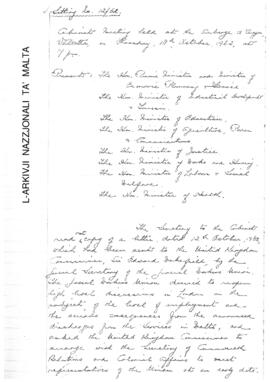 Sitting No. 12/62.
Cabinet Meeting held at the Auberge d'Aragon
Valletta, on Thursday, 18th October 1962, at
7 p.m.
Present: The Hon. Prime Minister and Minister of
Economic Planning & Finance
The Hon. Minister of Industrial Development
& Tourism
The Hon. Minister of Education
The Hon. Minister of Agriculture, Power
& Communications
The Hon. Minister of Justice
The Hon. Minister of Works and Housing
The Hon. Minister of Labour & Social
Welfare
The Hon. Minister of Health.
The Secretary to the Cabinet
read a copy of a letter dated 12th October 1962,
which had been sent to the United Kingdom
Commissioner, Sir Edward Wakefield, by the
General Secretary of the General Workers Union.
The General Workers Union desired to reopen
high level discussions in London on the
subject of the level of employment and
the serious consequences from the announced
discharges from the Services in Malta, and
asked the United Kingdom Commissioner to
arrange with the Secretary of Commonwealth
Relations and Colonial Affairs to meet
representatives of the Union at an early date.
L-ARKIVJI NAZZJONALI TA' MALTA